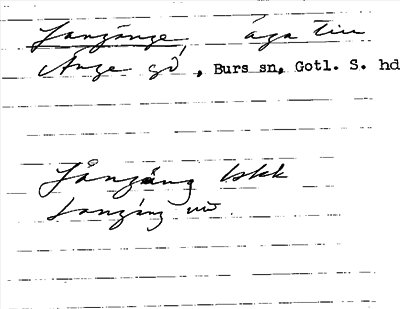 Langänge, äga till
Änge gd, Burs sn, Gotl. S. hd
Långäng bskk
Langäng uu.